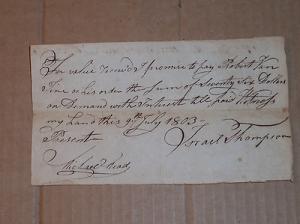 For value receiv'd I promise to pay Robert Van
Tine or his order the Sum of Seventy Six Dollars
on Demand with Interest till paid Witness
my hand this 9th July 1803 -
Present Israel Thompson
Read